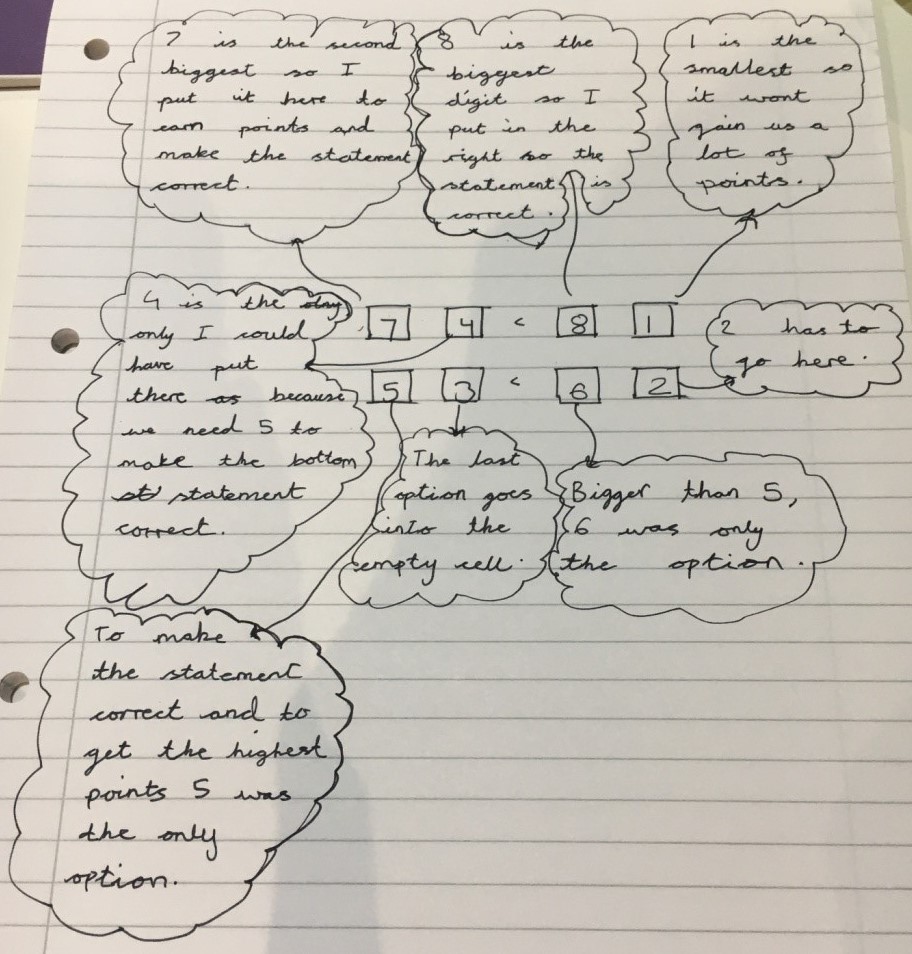 7 is the second
biggest so I
put it here to
earn points and
make the statement
correct.
8 is the
biggest
digit so I
put in the
right so the
statement is
correct.
1 is the
smallest so
it wont
gain us a
lot of
points.
4 is the
only I could
have put
there as because
we need 5 to
make the bottom
st statement
correct.
7 4 < 8 1
5 3 < 6 2
2 has to
go here.
The last
option goes
into the
empty cell.
Bigger than 5,
6 was only
the option.
To make
the statement
correct and to
get the highest
points 5 was
the only
option.